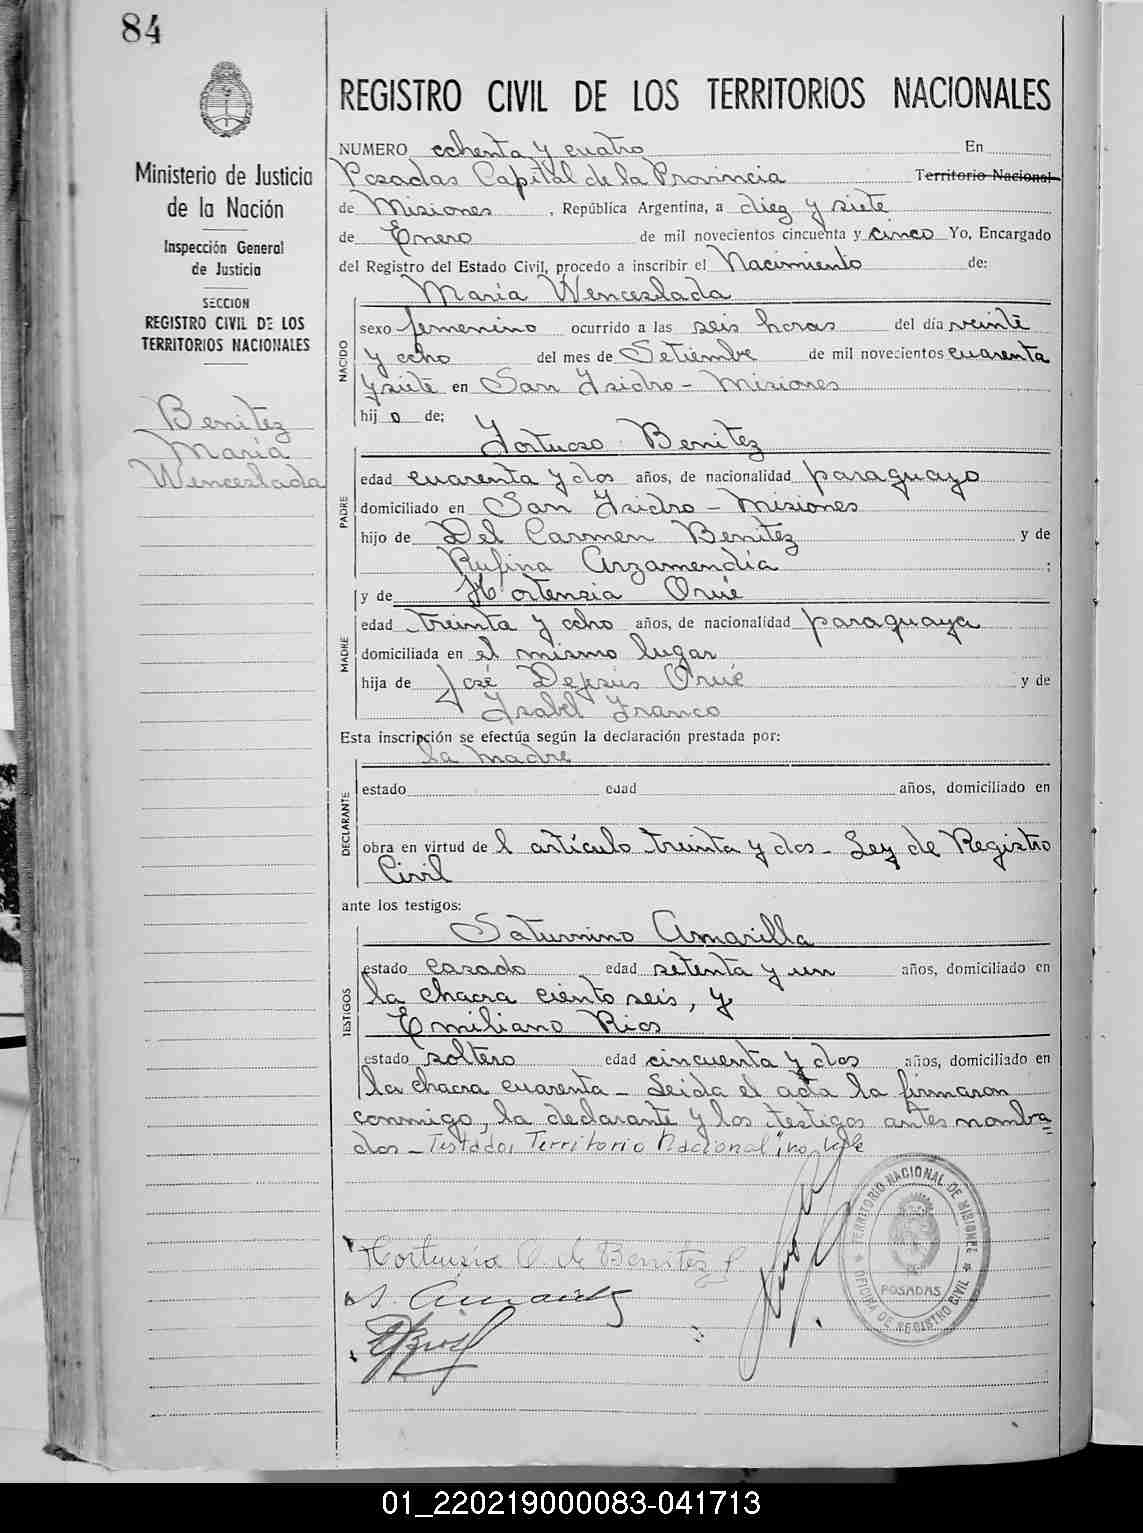 84
Ministerio de Justicia
de la Nación
Inspección General
de Justicia
SECCION
REGISTRO CIVIL DE LOS
TERRITORIOS NACIONALES
Benitez
María
Wenceslada
REGISTRO CIVIL DE LOS TERRITORIOS NACIONALES
NUMERO ochenta y cuatro En
Posadas Capital de la Provincia Territorio Nacional
de Misiones, República Argentina, a diez y siete
de Enero de mil novecientos cincuenta y cinco Yo, Encargado
del Registro del Estado Civil, procedo a inscribir el Nacimiento de:
María Wenceslada
NACIDO
sexo femenino ocurrido a las seis horas del día veinte
y ocho del mes de Setiembre de mil novecientos cuarenta
y siete en San Isidro - Misiones
hijo de;
Fortuoso Benitez
PADRE
edad cuarenta y dos años, de nacionalidad paraguayo
domiciliado en San Isidro - Misiones
hijo de Del Carmen Benitez y de
Rufina Arzamendia ;
y de Hortensia Orué
MADRE
edad treinta y ocho años, de nacionalidad paraguaya
domiciliada en el mismo lugar
hija de José Dejesús Orué y de
Isabel Franco
Esta inscripción se efectúa según la declaración prestada por:
la madre
DECLARANTE
estado edad años, domiciliado en
obra en virtud de l artículo treinta y dos - Ley de Registro
Civil
ante los testigos:
Saturnino Amarilla
TESTIGOS
estado casado edad setenta y un años, domiciliado en
la chacra ciento seis, y
Emiliano Rios
estado soltero edad cincuenta y dos años, domiciliado en
la chacra cuarenta - Leida el acta la firmaron
conmigo, la declarante y los testigos antes nombra=
dos - Testado, Territorio Nacional", no vale
Hortensia O. de Benitez
TERRITORIO NACIONAL DE MISIONES
POSADAS
OFICINA DE REGISTRO CIVIL
01_220219000083-041713